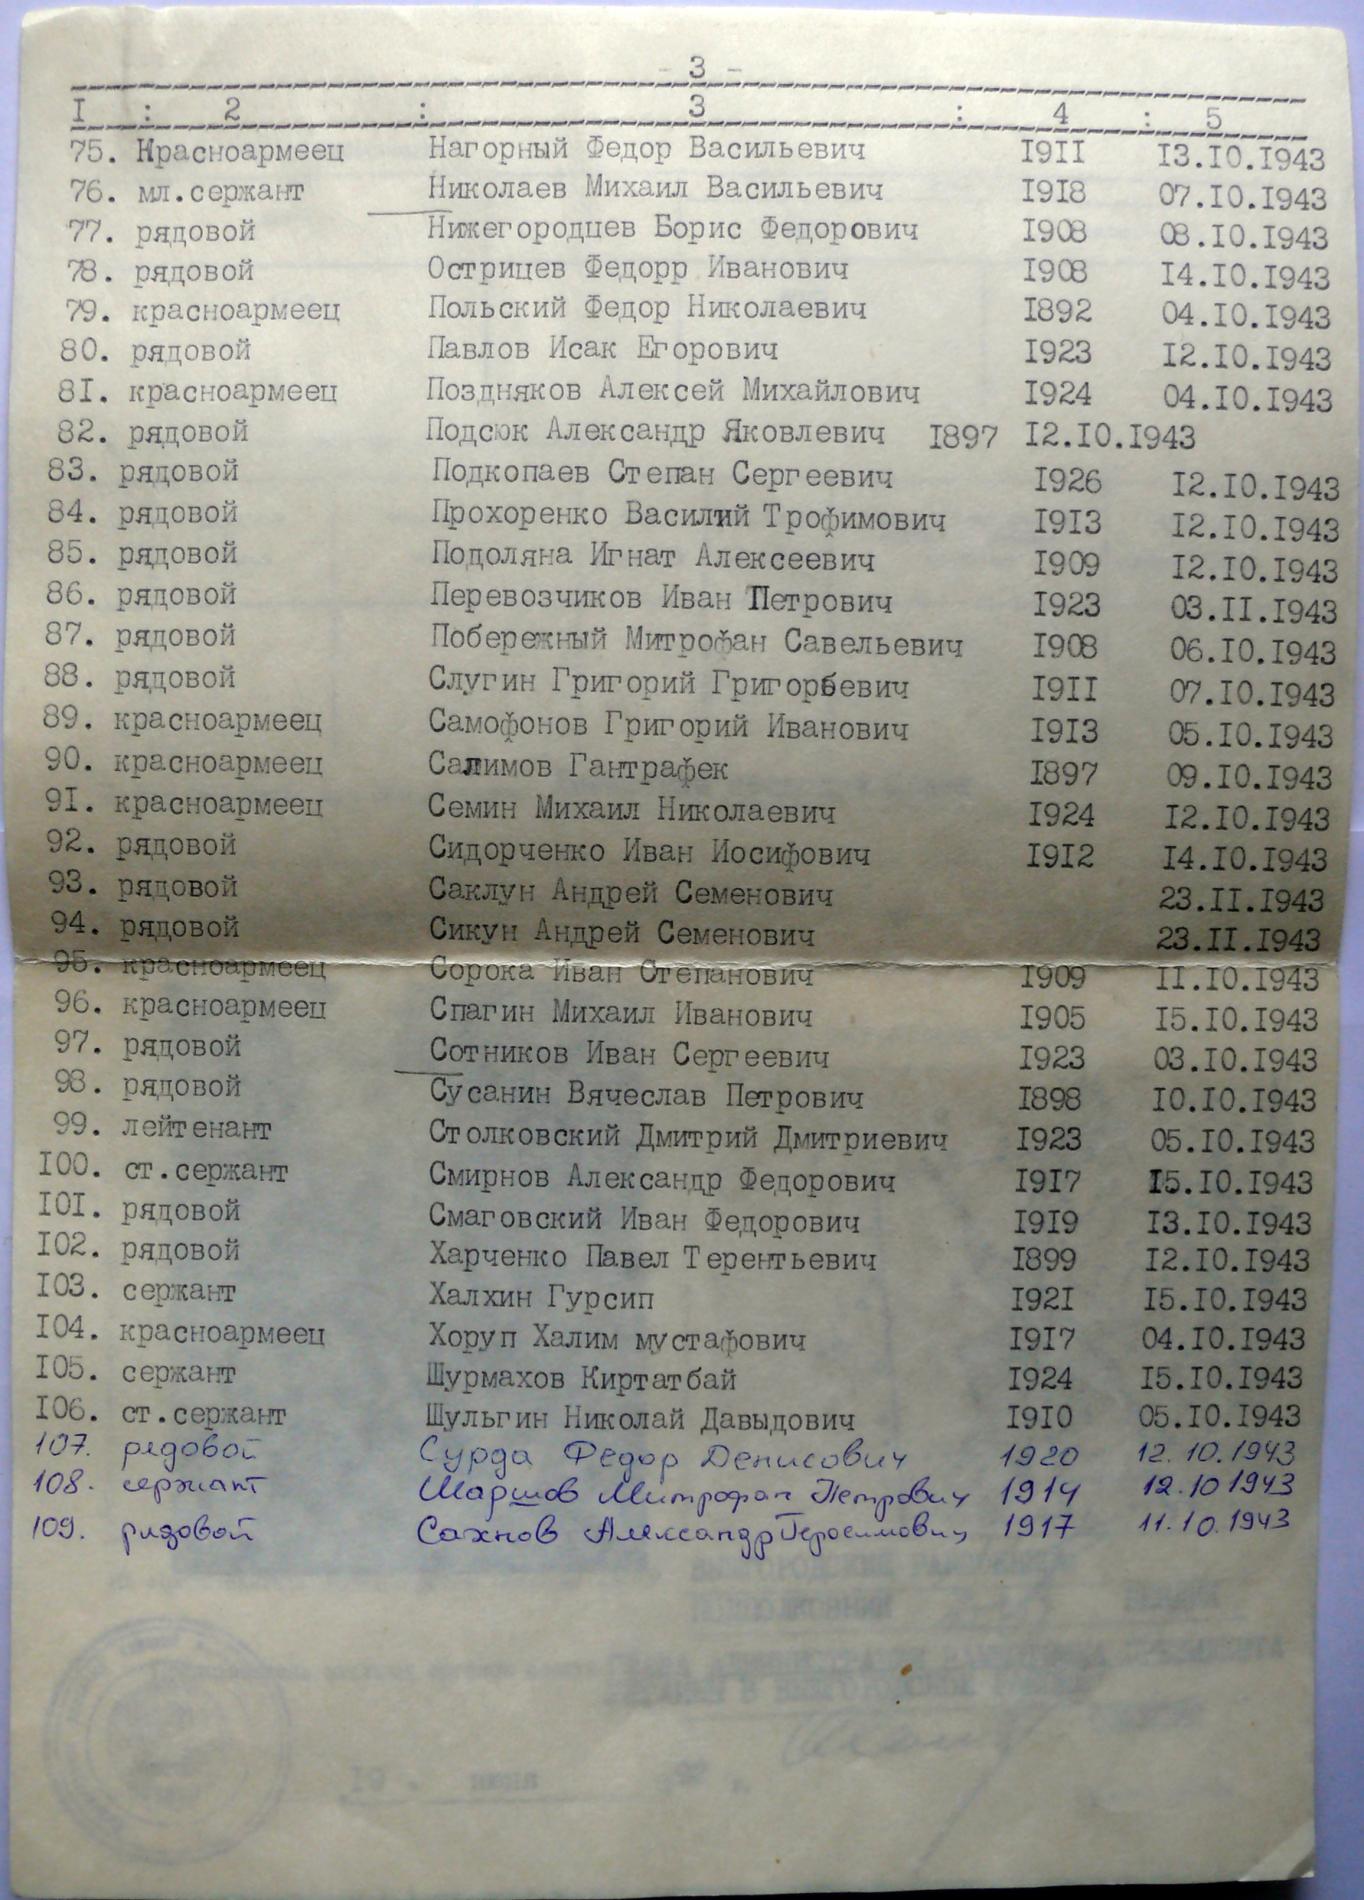 - 3 -
I : 2 : 3 : 4 : 5
75. Красноармеец Нагорный Федор Васильевич I9II I3.I0.I943
76. мл.сержант Николаев Михаил Васильевич I9I8 07.I0.I943
77. рядовой Нижегородцев Борис Федорович I908 08.I0.I943
78. рядовой Острицев Федорр Иванович I908 I4.I0.I943
79. красноармеец Польский Федор Николаевич I892 04.I0.I943
80. рядовой Павлов Исак Егорович I923 I2.I0.I943
8I. красноармеец Поздняков Алексей Михайлович I924 04.I0.I943
82. рядовой Подсюк Александр Яковлевич I897 I2.I0.I943
83. рядовой Подкопаев Степан Сергеевич I926 I2.I0.I943
84. рядовой Прохоренко Василий Трофимович I9I3 I2.I0.I943
85. рядовой Подоляна Игнат Алексеевич I909 I2.I0.I943
86. рядовой Перевозчиков Иван Петрович I923 03.II.I943
87. рядовой Побережный Митрофан Савельевич I908 06.I0.I943
88. рядовой Слугин Григорий Григорьевич I9II 07.I0.I943
89. красноармеец Самофонов Григорий Иванович I9I3 05.I0.I943
90. красноармеец Салимов Гантрафек I897 09.I0.I943
9I. красноармеец Семин Михаил Николаевич I924 I2.I0.I943
92. рядовой Сидорченко Иван Иосифович I9I2 I4.I0.I943
93. рядовой Саклун Андрей Семенович 23.II.I943
94. рядовой Сикун Андрей Семенович 23.II.I943
95. красноармеец Сорока Иван Степанович I909 II.I0.I943
96. красноармеец Спагин Михаил Иванович I905 I5.I0.I943
97. рядовой Сотников Иван Сергеевич I923 03.I0.I943
98. рядовой Сусанин Вячеслав Петрович I898 I0.I0.I943
99. лейтенант Столковский Дмитрий Дмитриевич I923 05.I0.I943
I00. ст.сержант Смирнов Александр Федорович I9I7 I5.I0.I943
I0I. рядовой Смаговский Иван Федорович I9I9 I3.I0.I943
I02. рядовой Харченко Павел Терентьевич I899 I2.I0.I943
I03. сержант Халхин Гурсип I92I I5.I0.I943
I04. красноармеец Хоруп Халим мустафович I9I7 04.I0.I943
I05. сержант Шурмахов Киртатбай I924 I5.I0.I943
I06. ст.сержант Шульгин Николай Давыдович I9I0 05.I0.I943
107. рядовой Сурда Федор Денисович 1920 12.10.1943
108. сержант Маршов Митрофан Петрович 1914 12.10 1943
109. рядовой Сахнов Александр Геросимович 1917 11.10.1943